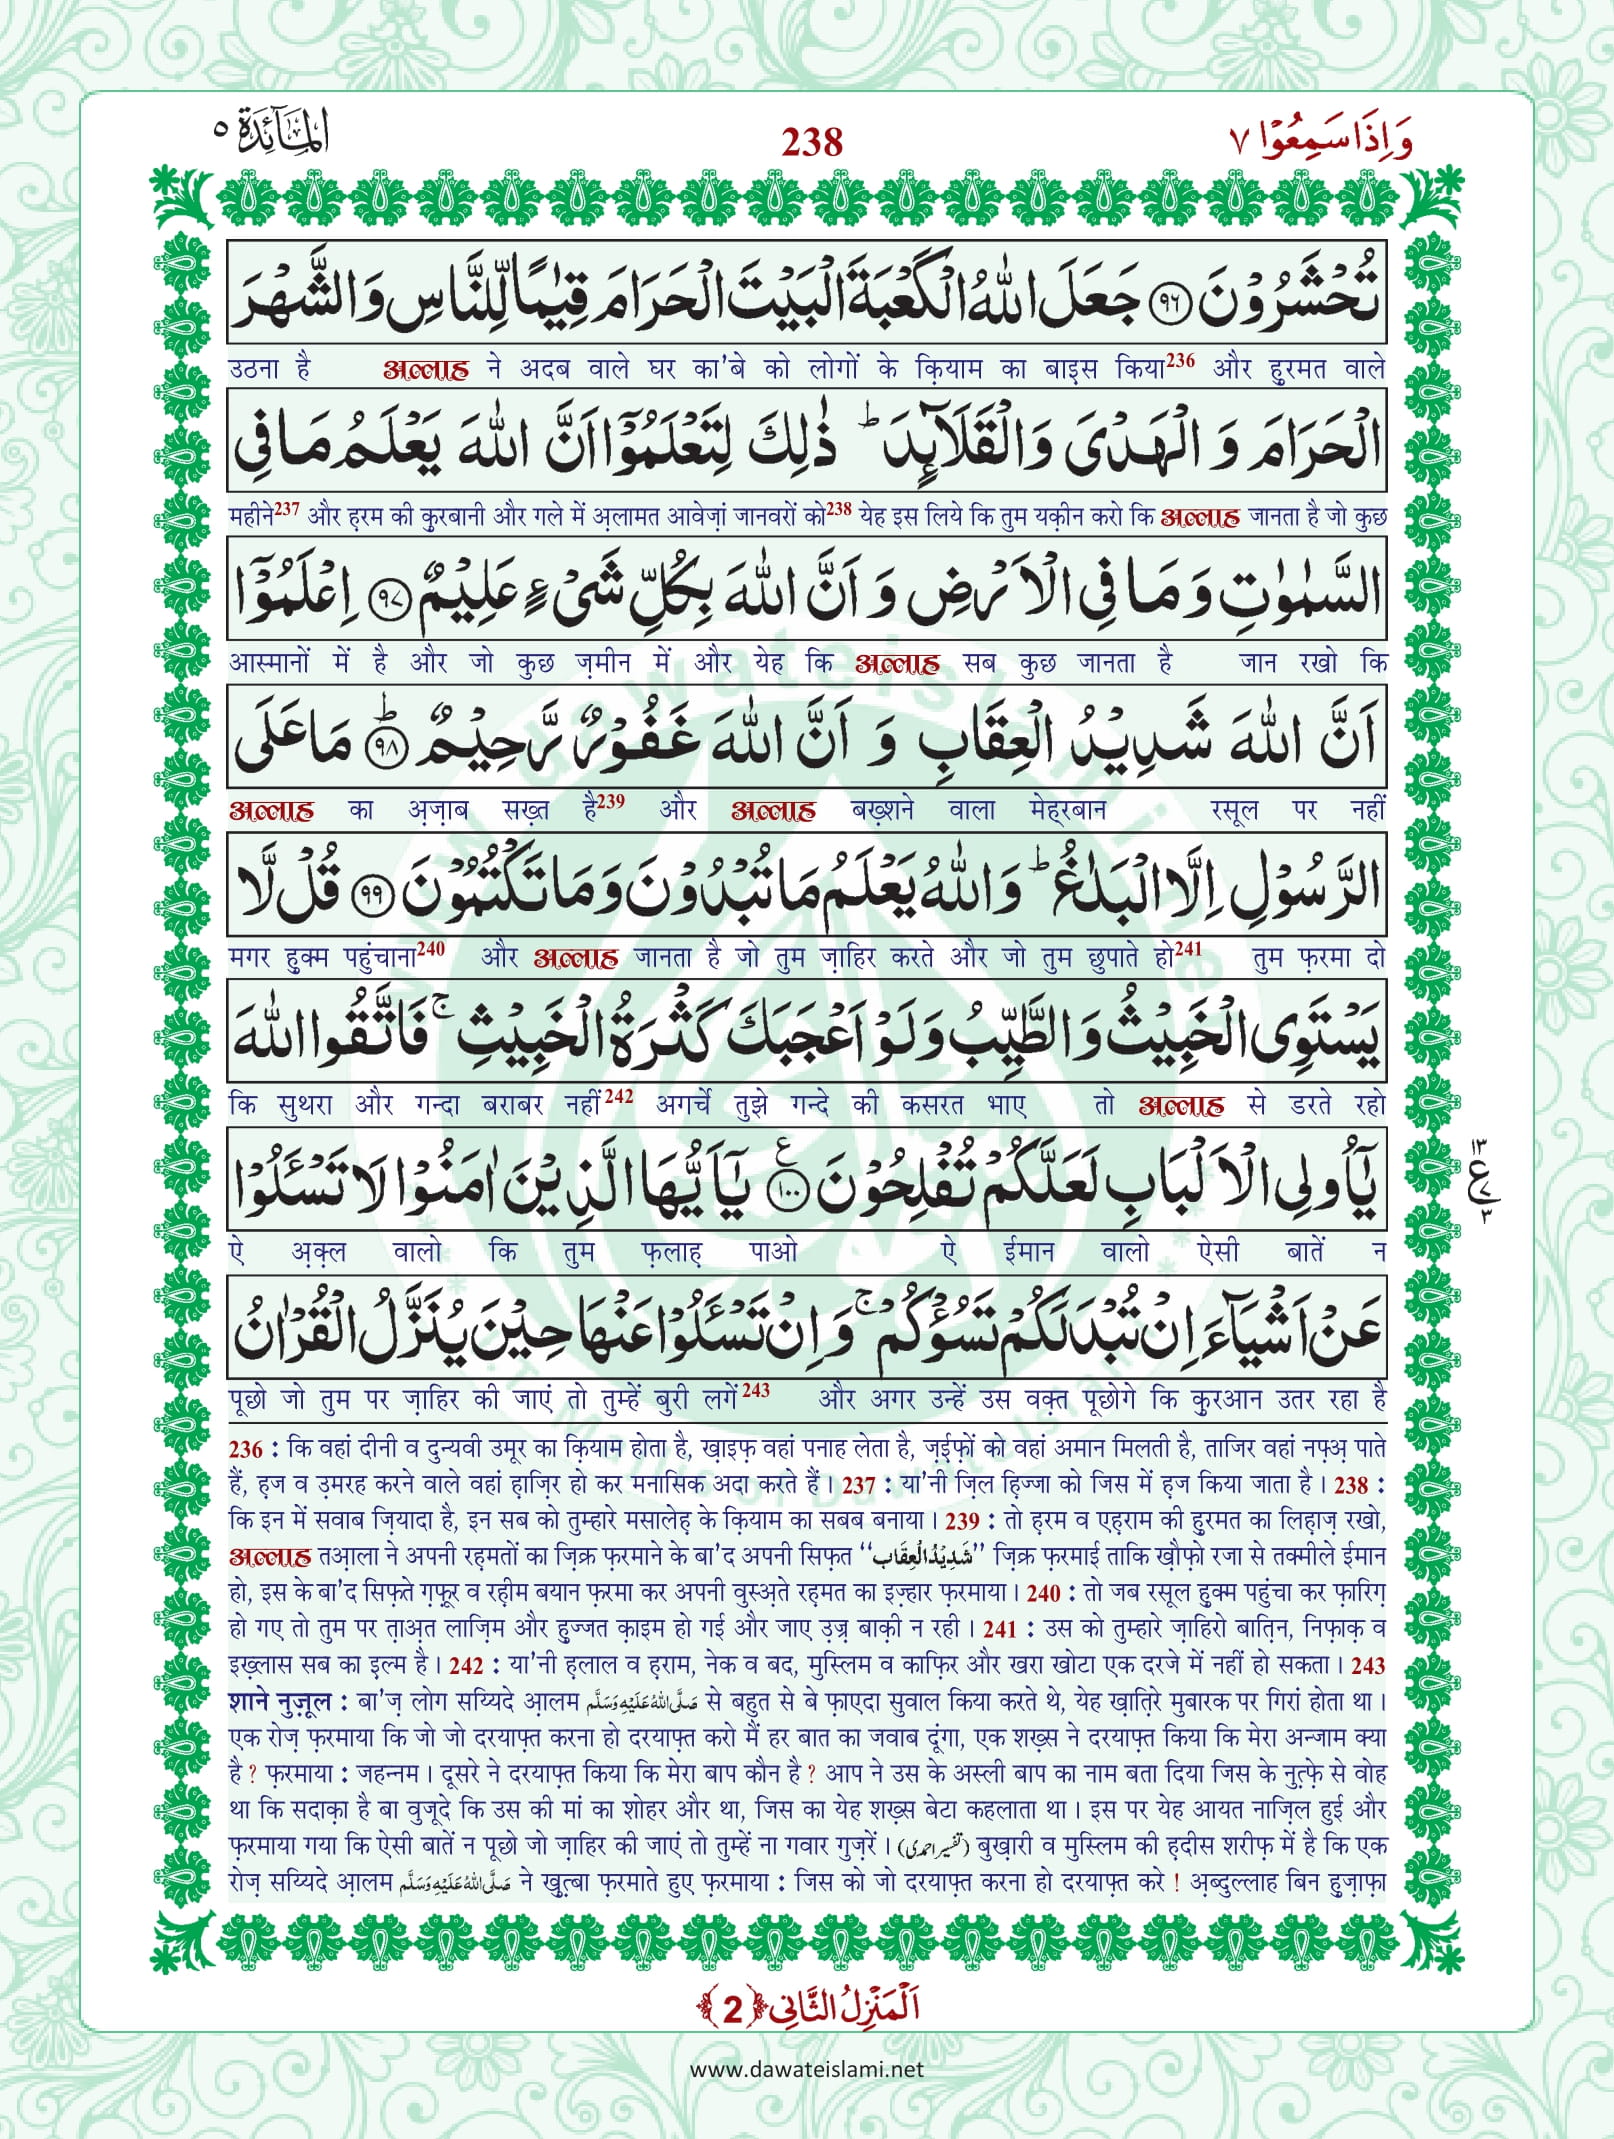 وَاِذَا سَمِعُوْا ٧
238
اَلْمَآئِدَة ٥
تُحْشَرُوْنَ ﴿٩٦﴾ جَعَلَ اللّٰهُ الْكَعْبَةَ الْبَیْتَ الْحَرَامَ قِیٰمًا لِّلنَّاسِ وَالشَّهْرَ
उठना है अल्लाह ने अदब वाले घर का'बे को लोगों के क़ियाम का बाइस किया236 और हुरमत वाले
الْحَرَامَ وَ الْهَدْیَ وَالْقَلَآئِدَ ؕ ذٰلِكَ لِتَعْلَمُوْۤا اَنَّ اللّٰهَ یَعْلَمُ مَا فِی
महीने237 और ह़रम की क़ुरबानी और गले में अ़लामत आवेज़ां जानवरों को238 येह इस लिये कि तुम यक़ीन करो कि अल्लाह जानता है जो कुछ
السَّمٰوٰتِ وَ مَا فِی الْاَرْضِ وَ اَنَّ اللّٰهَ بِكُلِّ شَیْءٍ عَلِیْمٌ ﴿٩٧﴾ اِعْلَمُوْۤا
आस्मानों में है और जो कुछ ज़मीन में और येह कि अल्लाह सब कुछ जानता है जान रखो कि
اَنَّ اللّٰهَ شَدِیْدُ الْعِقَابِ وَ اَنَّ اللّٰهَ غَفُوْرٌ رَّحِیْمٌ ﴿٩٨﴾ؕ مَا عَلَی
अल्लाह का अ़ज़ाब सख़्त है239 और अल्लाह बख़्शने वाला मेहरबान रसूल पर नहीं
الرَّسُوْلِ اِلَّا الْبَلٰغُ ؕ وَاللّٰهُ یَعْلَمُ مَا تُبْدُوْنَ وَ مَا تَكْتُمُوْنَ ﴿٩٩﴾ قُلْ لَّا
मगर हुक्म पहुंचाना240 और अल्लाह जानता है जो तुम ज़ाहिर करते और जो तुम छुपाते हो241 तुम फ़रमा दो
یَسْتَوِی الْخَبِیْثُ وَالطَّیِّبُ وَلَوْ اَعْجَبَكَ كَثْرَةُ الْخَبِیْثِ ۚ فَاتَّقُوا اللّٰهَ
कि सुथरा और गन्दा बराबर नहीं242 अगर्चे तुझे गन्दे की कसरत भाए तो अल्लाह से डरते रहो
یٰۤاُولِی الْاَلْبَابِ لَعَلَّكُمْ تُفْلِحُوْنَ ﴿١٠٠﴾ع یٰۤاَیُّهَا الَّذِیْنَ اٰمَنُوْا لَا تَسْـَٔلُوْا
١٣ ع ٧ ٣
ऐ अ़क़्ल वालो कि तुम फ़लाह़ पाओ ऐ ईमान वालो ऐसी बातें न
عَنْ اَشْیَآءَ اِنْ تُبْدَ لَكُمْ تَسُؤْكُمْ ۚ وَ اِنْ تَسْـَٔلُوْا عَنْهَا حِیْنَ یُنَزَّلُ الْقُرْاٰنُ
पूछो जो तुम पर ज़ाहिर की जाएं तो तुम्हें बुरी लगें243 और अगर उन्हें उस वक़्त पूछोगे कि क़ुरआन उतर रहा है
236 : कि वहां दीनी व दुन्यवी उमूर का क़ियाम होता है, ख़ाइफ़ वहां पनाह लेता है, ज़ई़फ़ों को वहां अमान मिलती है, ताजिर वहां नफ़्अ़ पाते
हैं, ह़ज व उ़मरह करने वाले वहां ह़ाज़िर हो कर मनासिक अदा करते हैं। 237 : या'नी ज़िल ह़िज्जा को जिस में ह़ज किया जाता है। 238 :
कि इन में सवाब ज़ियादा है, इन सब को तुम्हारे मसालेह़ के क़ियाम का सबब बनाया। 239 : तो ह़रम व एह़राम की हुरमत का लिह़ाज़ रखो,
अल्लाह तआ़ला ने अपनी रह़मतों का ज़िक्र फ़रमाने के बा'द अपनी सिफ़त ‘‘شَدِیْدُ الْعِقَاب’’ ज़िक्र फ़रमाई ताकि ख़ौफ़ो रजा से तक्मीले ईमान
हो, इस के बा'द सिफ़ते ग़फ़ूर व रह़ीम बयान फ़रमा कर अपनी वुस्अ़ते रह़मत का इज़्हार फ़रमाया। 240 : तो जब रसूल हुक्म पहुंचा कर फ़ारिग़
हो गए तो तुम पर त़ाअ़त लाज़िम और हुज्जत क़ाइम हो गई और जाए उ़ज़्र बाक़ी न रही। 241 : उस को तुम्हारे ज़ाहिरो बात़िन, निफ़ाक़ व
इख़्लास सब का इल्म है। 242 : या'नी ह़लाल व ह़राम, नेक व बद, मुस्लिम व काफ़िर और खरा खोटा एक दरजे में नहीं हो सकता। 243
शाने नुज़ूल : बा'ज़ लोग सय्यिदे आ़लम صَلَّی اللّٰهُ عَلَیْهِ وَسَلَّم से बहुत से बे फ़ाएदा सुवाल किया करते थे, येह ख़ात़िरे मुबारक पर गिरां होता था।
एक रोज़ फ़रमाया कि जो जो दरयाफ़्त करना हो दरयाफ़्त करो मैं हर बात का जवाब दूंगा, एक शख़्स ने दरयाफ़्त किया कि मेरा अन्जाम क्या
है? फ़रमाया : जहन्नम। दूसरे ने दरयाफ़्त किया कि मेरा बाप कौन है? आप ने उस के अस्ली बाप का नाम बता दिया जिस के नुत़्फ़े से वोह
था कि सदाक़ा है बा वुजूदे कि उस की मां का शोहर और था, जिस का येह शख़्स बेटा कहलाता था। इस पर येह आयत नाज़िल हुई और
फ़रमाया गया कि ऐसी बातें न पूछो जो ज़ाहिर की जाएं तो तुम्हें ना गवार गुज़रें। (تفسیر احمدی) बुख़ारी व मुस्लिम की ह़दीस शरीफ़ में है कि एक
रोज़ सय्यिदे आ़लम صَلَّی اللّٰهُ عَلَیْهِ وَسَلَّم ने ख़ुत़्बा फ़रमाते हुए फ़रमाया : जिस को जो दरयाफ़्त करना हो दरयाफ़्त करे! अ़ब्दुल्लाह बिन हुज़ाफ़ा
اَلْمَنْزِلُ الثَّانِی ﴿2﴾
www.dawateislami.net